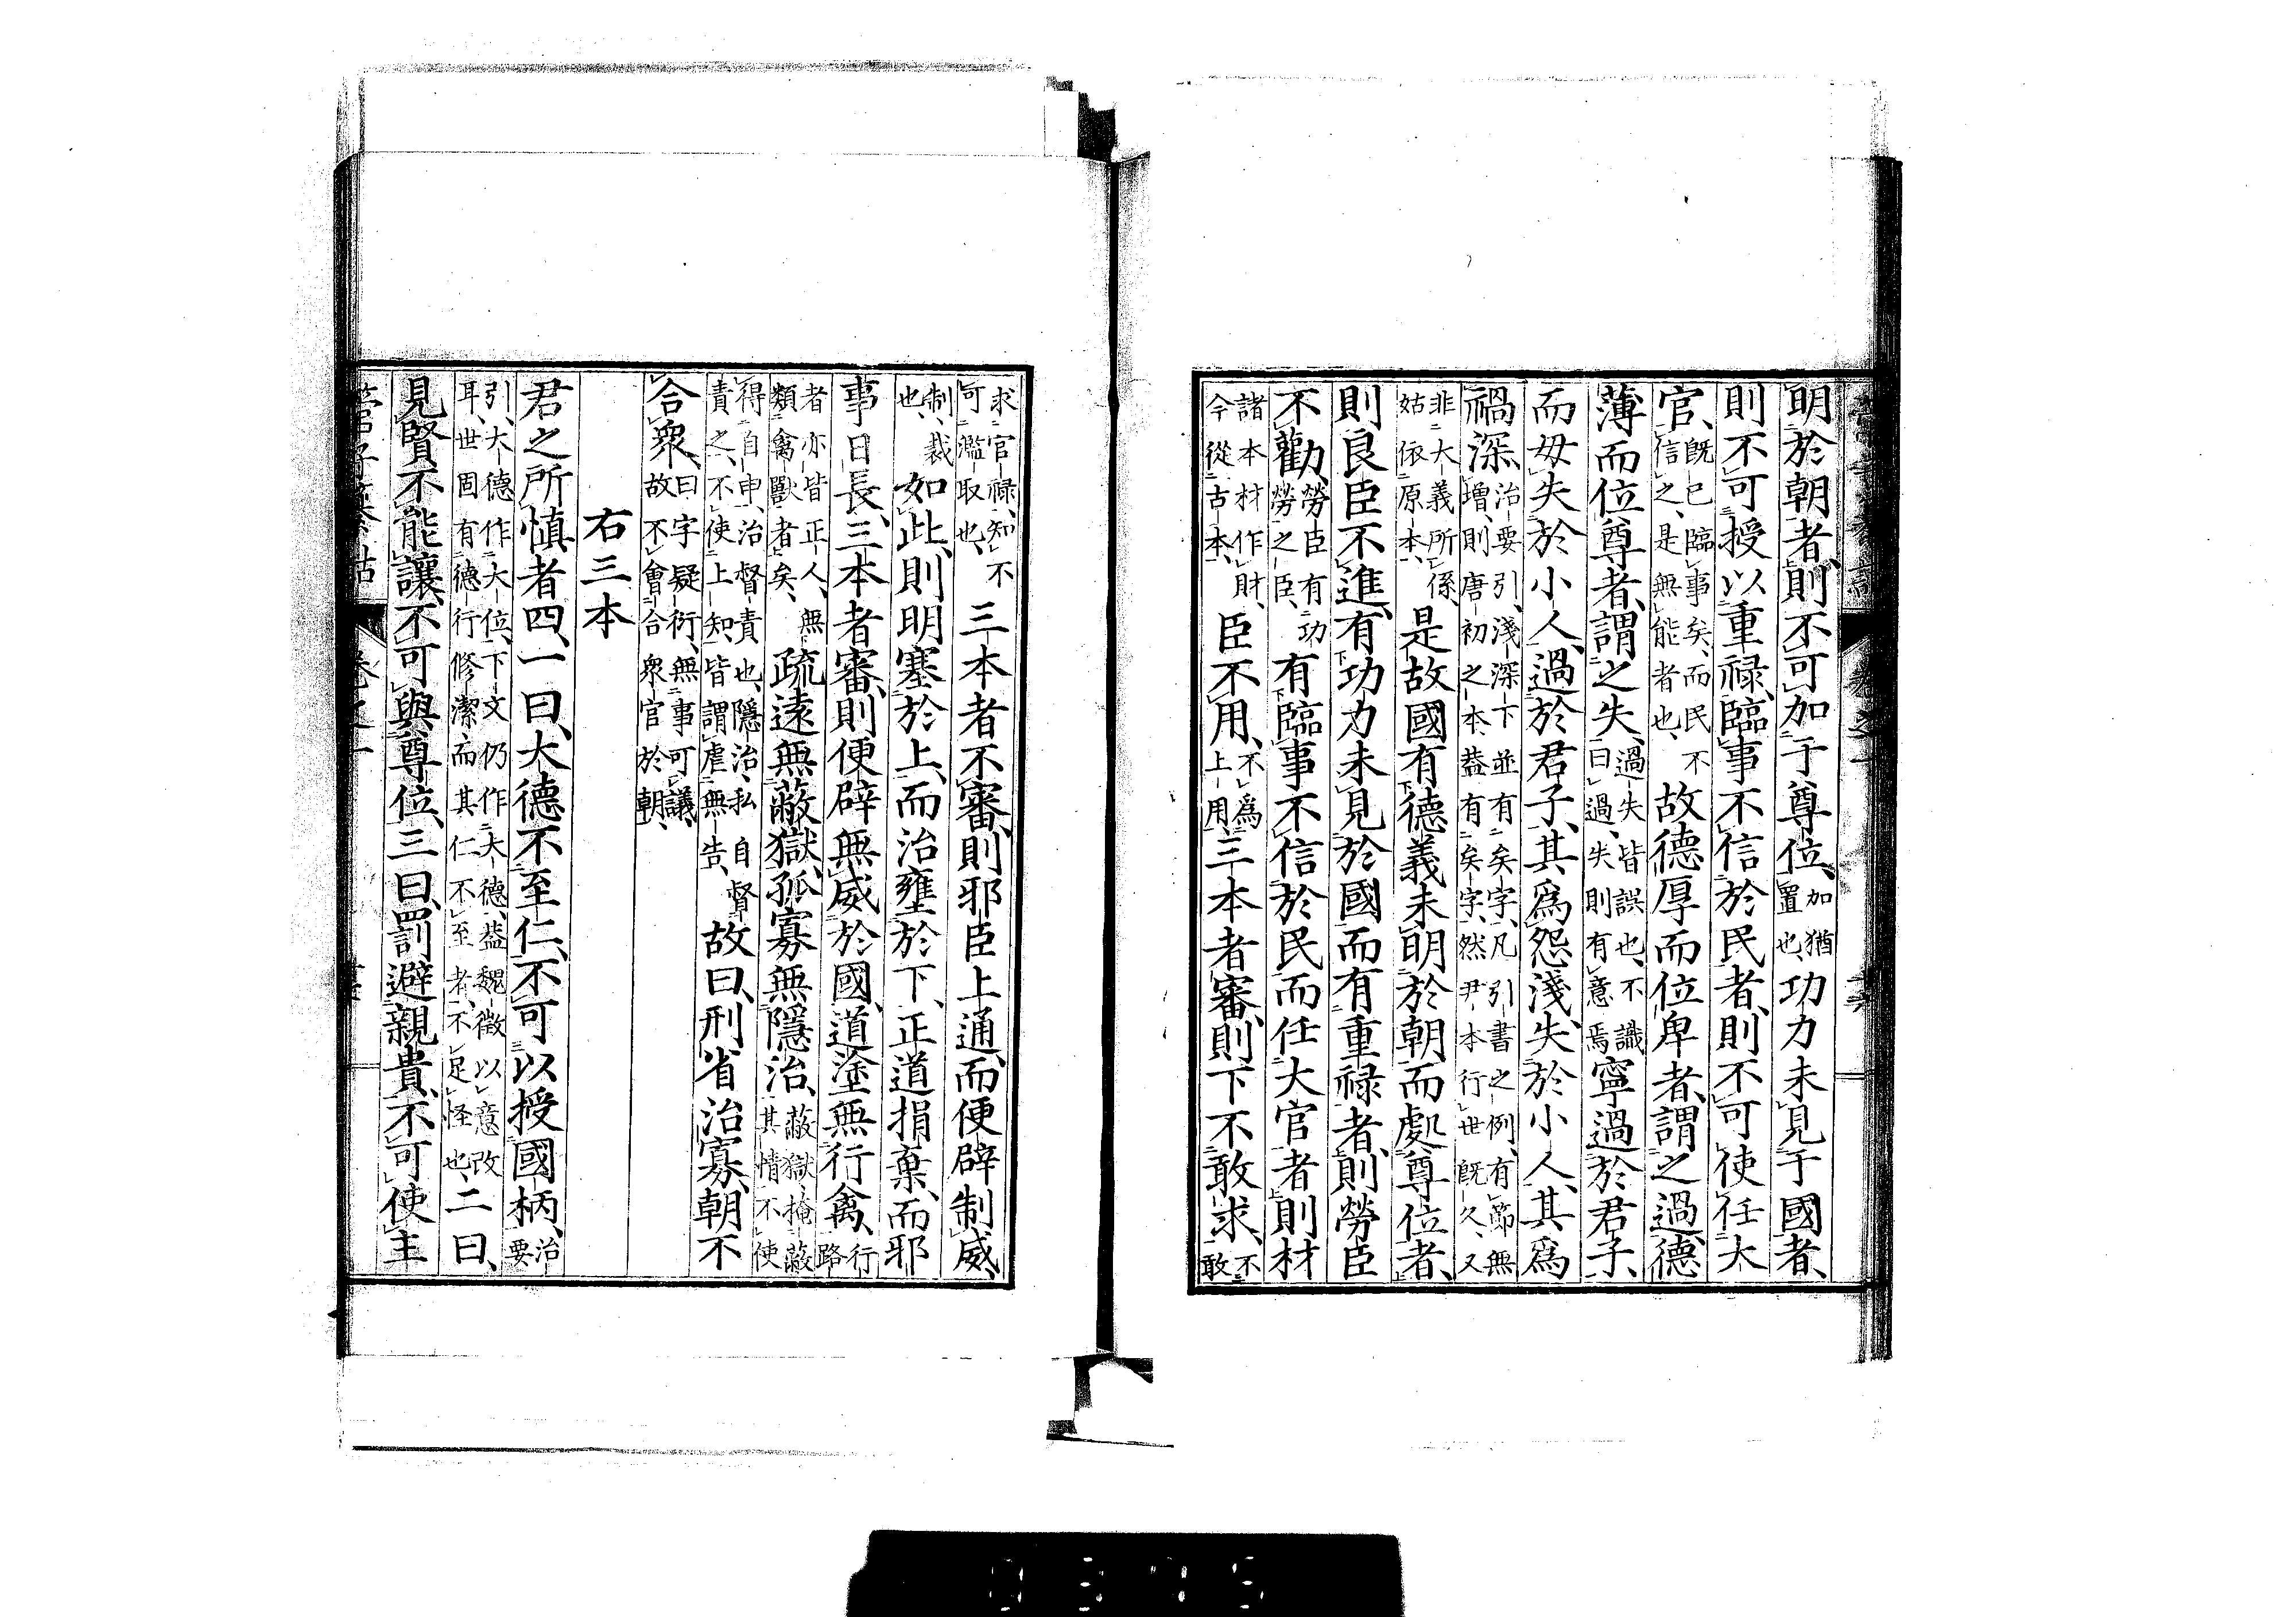 明於朝者、則不可加于尊位、加猶置也、功力未見于國者、
則不可授以重祿、臨事不信於民者、則不可使任大
官、既已臨事矣、而民不信之、是無能者也、故德厚而位卑者、謂之過、德
薄而位尊者、謂之失、過失皆誤也、不識曰過、失則有意焉寧過於君子、
而毋失於小人、過於君子、其爲怨淺、失於小人、其爲
禍深、治要引、淺深下並有矣字、凡引書之例、有節無增、則唐初之本、蓋有矣字、然尹本行世既久、又
非大義所係、姑依原本、是故國有德義未明於朝而處尊位者、
則良臣不進、有功力未見於國而有重祿者、則勞臣
不勸、勞臣有功勞之臣、有臨事不信於民而任大官者、則材
諸本材作財、今從古本、臣不用、不爲上用、三本者審、則下不敢求、不敢
求官祿、知不可濫取也、三本者不審、則邪臣上通、而便辟制威、
制、裁也、如此、則明塞於上、而治壅於下、正道捐棄、而邪
事日長、三本者審、則便辟無威於國、道塗無行禽、行路
者亦皆正人、無類禽獸者矣、疏遠無蔽獄、孤寡無隱治、蔽獄、掩蔽其情不使
得自申、治督責也、隱治、私自督責之、不使上知、皆謂虐無告、故曰、刑省治寡、朝不
合衆、曰字疑衍、無事可議、故不會合衆官於朝、
右三本
君之所慎者四、一曰、大德不至仁、不可以授國柄、治要
引、大德作大位、下文仍作大德、蓋魏徵以意改耳、世固有德行修潔而其仁不至者、不足怪也、二曰、
見賢不能讓、不可與尊位、三曰、罰避親貴、不可使主
管子纂詁 卷之一